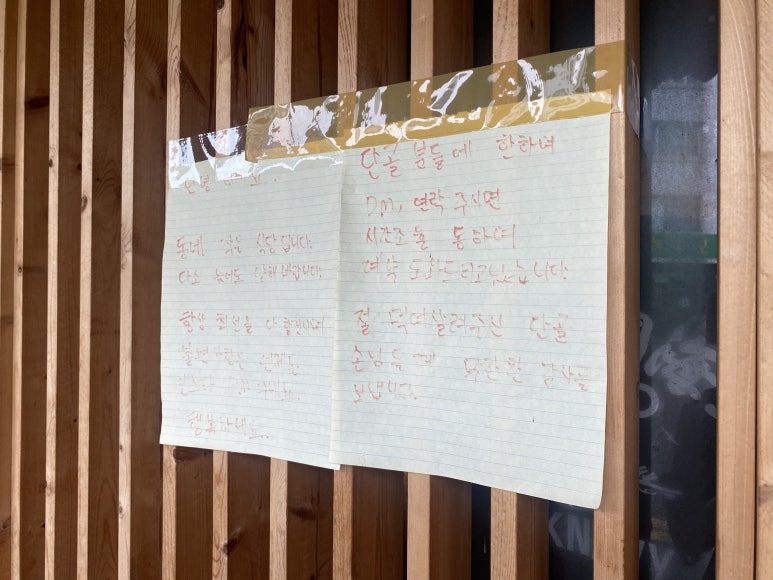 안녕하세요..
동네 작은 식당입니다.
다소 늦어도 양해바랍니다.
항상 최선을 다 할것이며
행복하세요.
단골 분들에 한하여
DM, 연락 주시면
시간조율 통하여
예약 도와드리고있습니다.
절 먹여살려주신 단골
손님들께 무한한 감사를
보냅니다.
KN